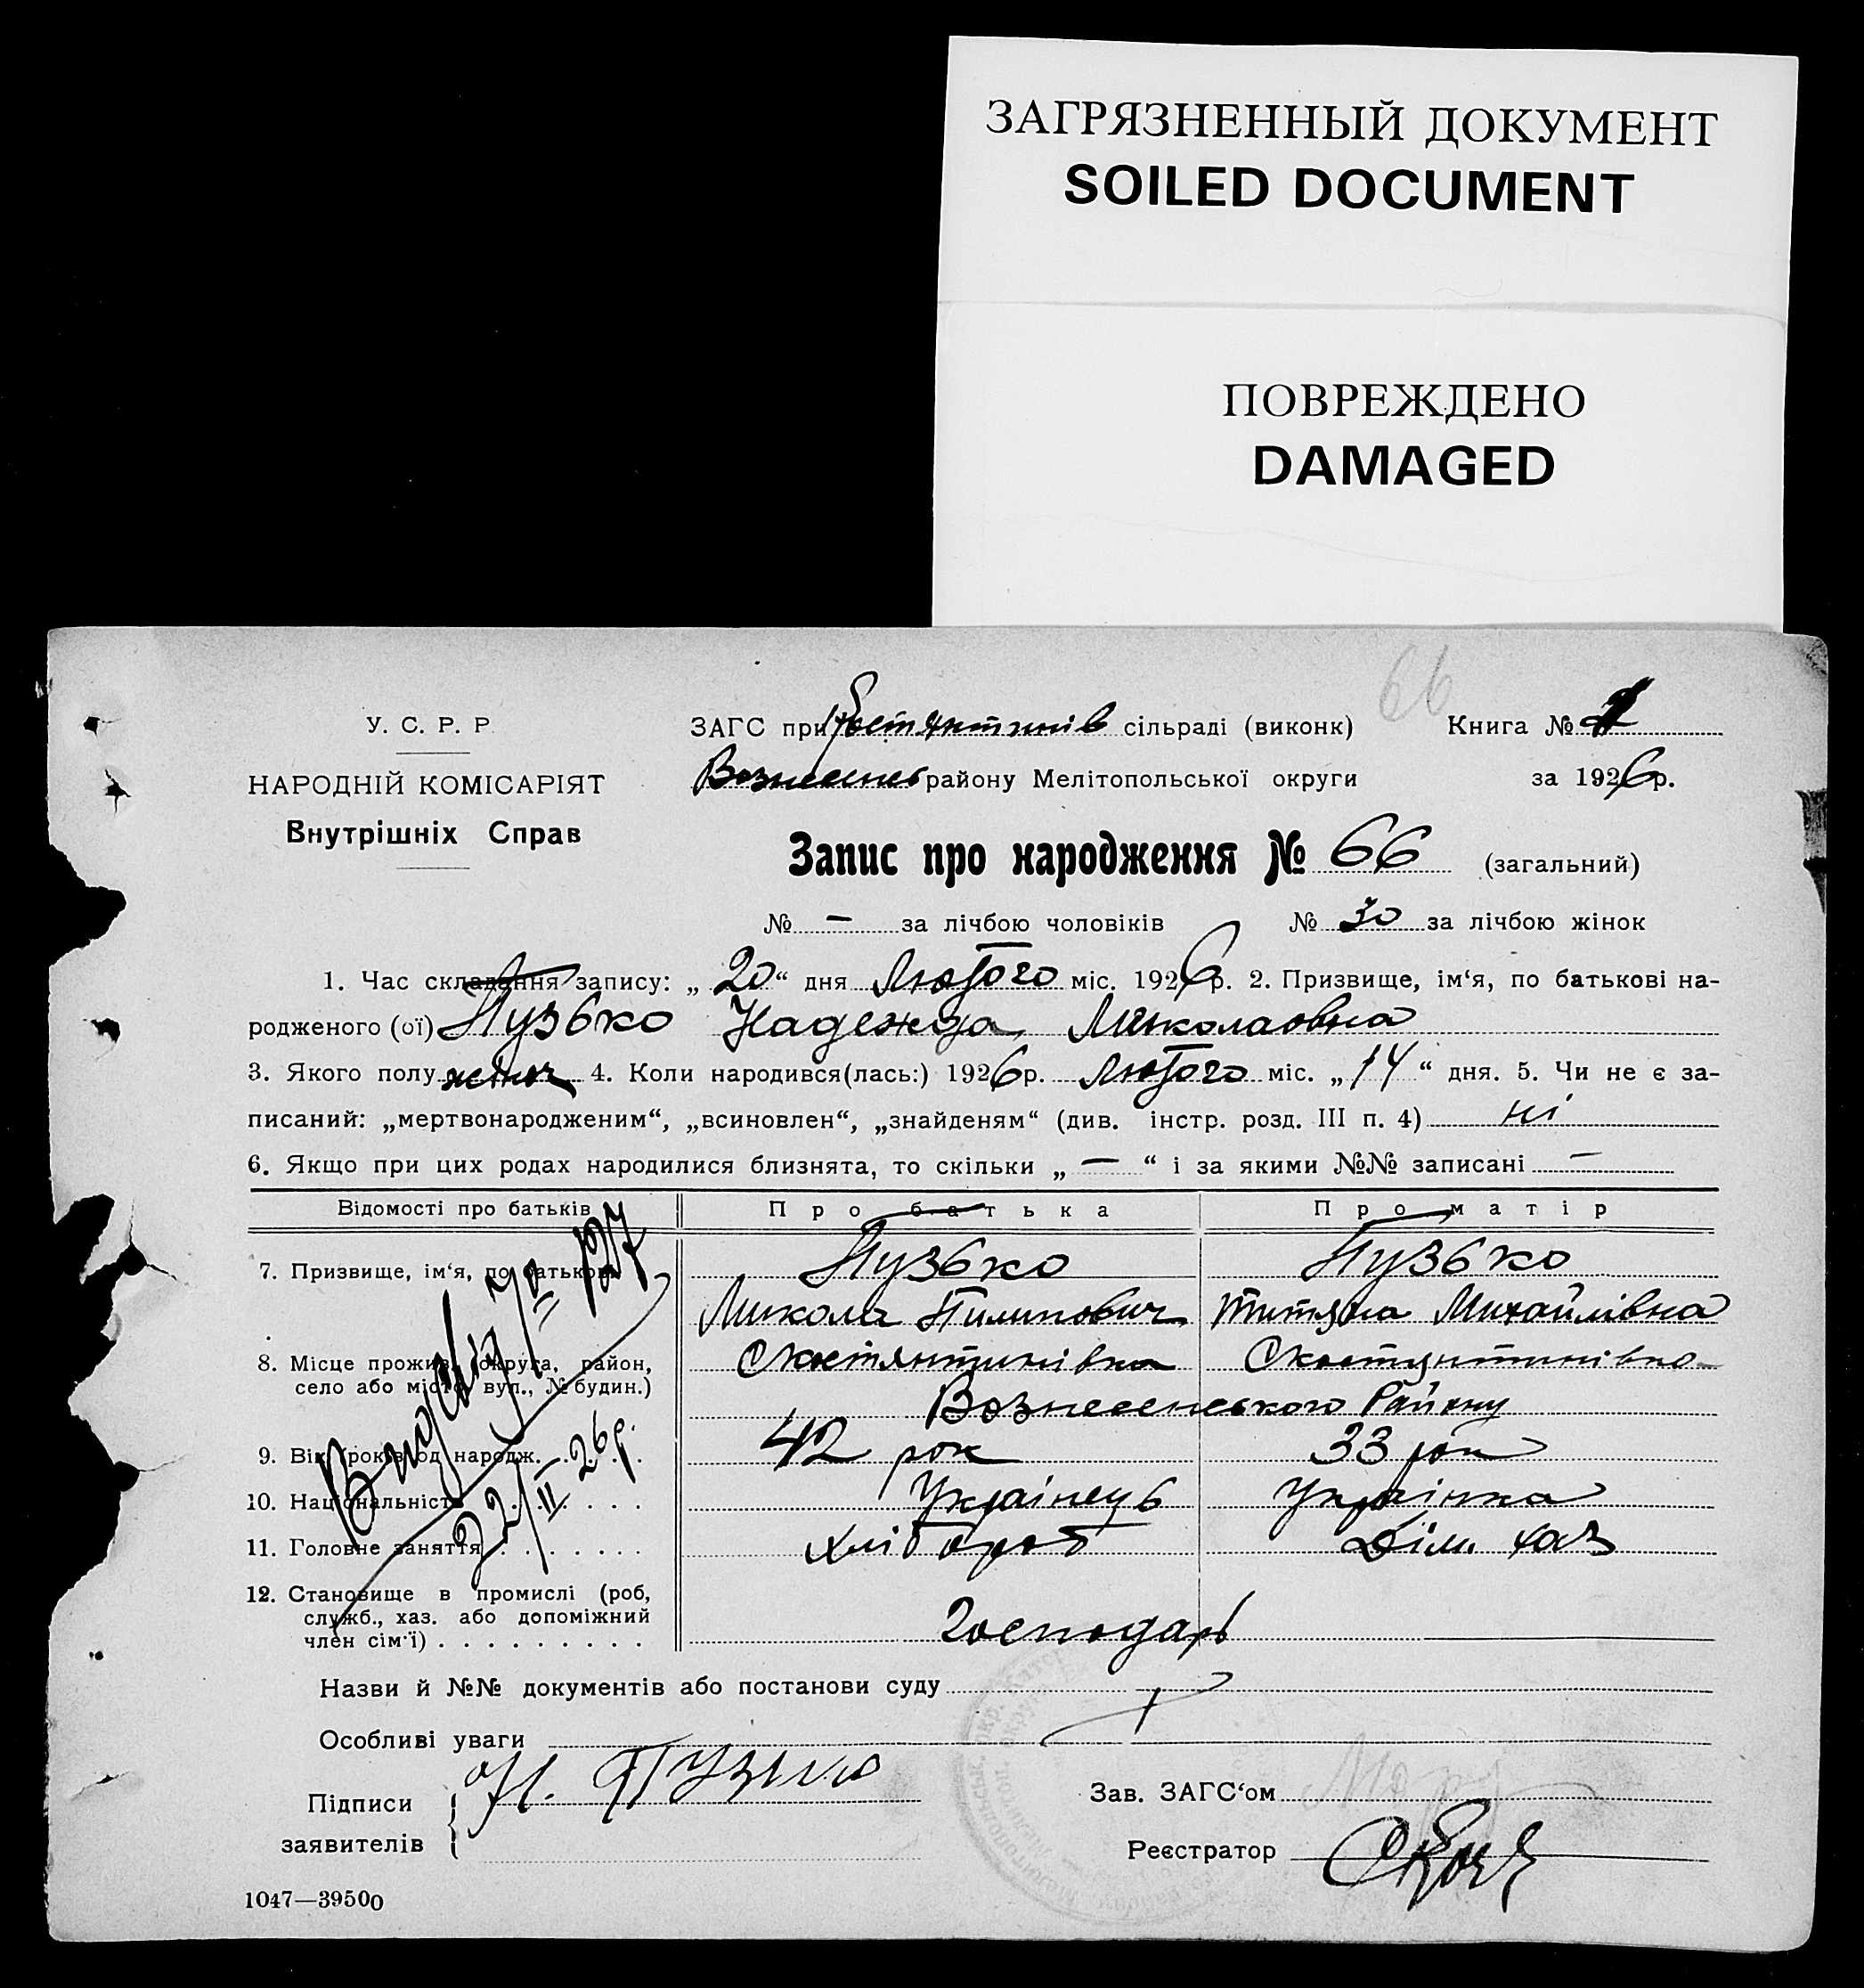 ЗАГРЯЗНЕННЫЙ ДОКУМЕНТ
SOILED DOCUMENT
ПОВРЕЖДЕНО
DAMAGED
66
У. С. Р. Р
НАРОДНІЙ КОМІСАРІЯТ
Внутрішніх Справ
ЗАГС при Костянтинів сільраді (виконк) Книга №
Вознесенс району Мелітопольської округи за 1926 р.
Запис про народження № 66 (загальний)
№ — за лічбою чоловіків № 30 за лічбою жінок
1. Час складання запису: „ 20 “ дня Лютого міс. 1926 р. 2. Призвище, ім‘я, по батькові на-
родженого (ої) Пузько Надежда Миколаовна
3. Якого полу жіноч 4. Коли народився(лась:) 1926 р. Лютого міс. „ 14 “ дня. 5. Чи не є за-
писаний: „мертвонародженим“, „всиновлен“, „знайденям“ (див. інстр. розд. III п. 4) ні
6. Якщо при цих родах народилися близнята, то скільки „ — “ і за якими №№ записані —
Відомості про батьків Про батька Про матір
7. Призвище, ім‘я, по батькові Пузько Пузько
Микола Пилипович Титяна Михайлівна
8. Місце прожив. округа, район,
село або місто, вул., № будин.) С Костянтинівка С Костянтинівка
Вознесенського Району
9. Вік (років од народж. 42 рок 33 рок
10. Національність Українець Українка
11. Головне заняття Хлібороб Дім. хаз
12. Становище в промислі (роб,
служб., хаз. або допоміжний
член сім‘ї) Господарь
22/II 26 р.
Назви й №№ документів або постанови суду
Особливі уваги
Підписи
заявителів
Н. Пузько
Зав. ЗАГС‘ом
Реєстратор
1047—39500